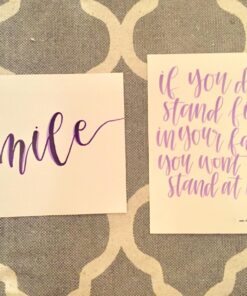 mile
if you
stand
in your
you wont
stand at